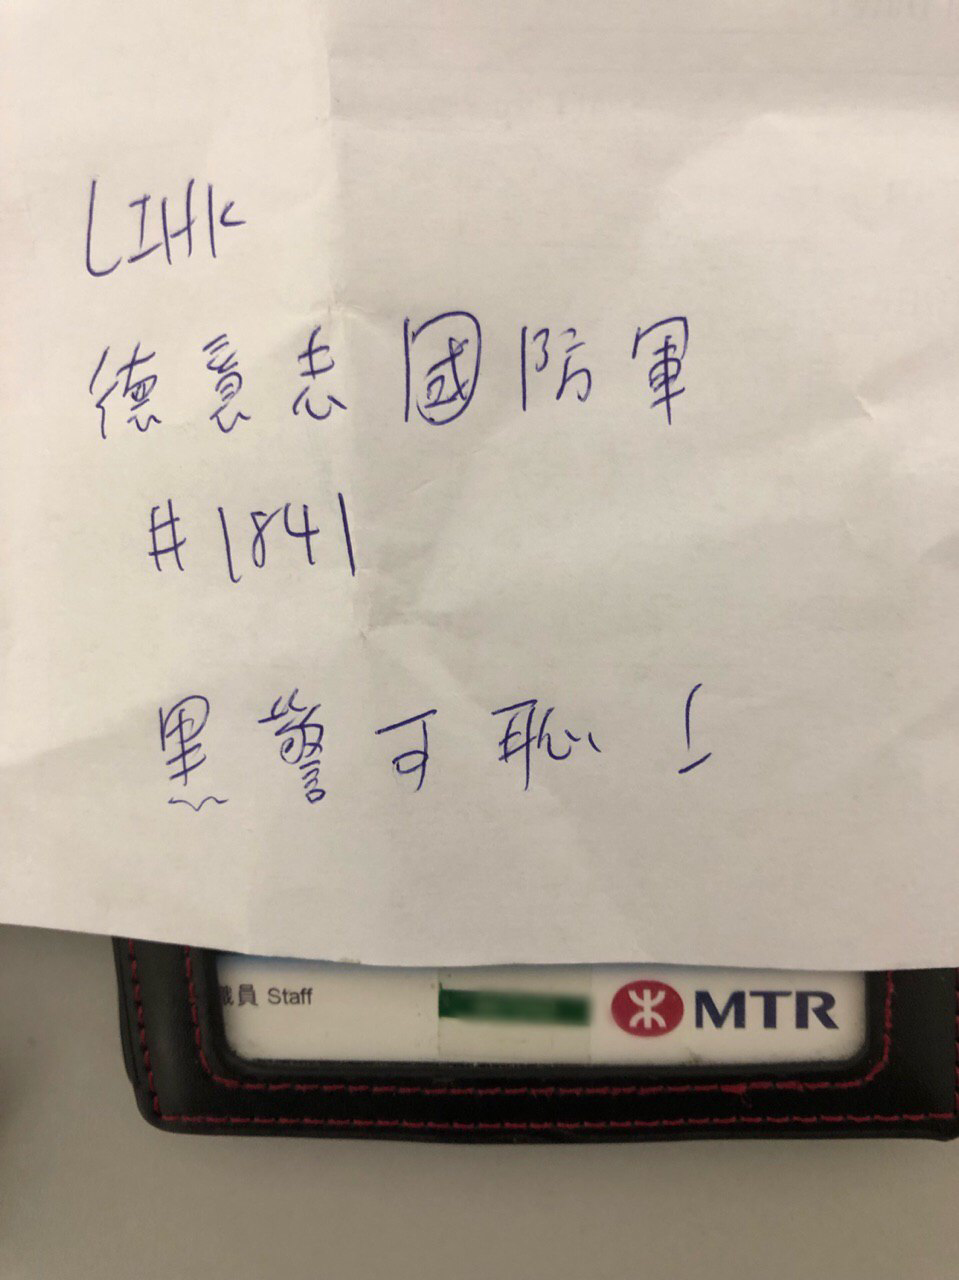 LIHK
德意志國防軍
#1841
黑警可恥!
職員 Staff
MTR